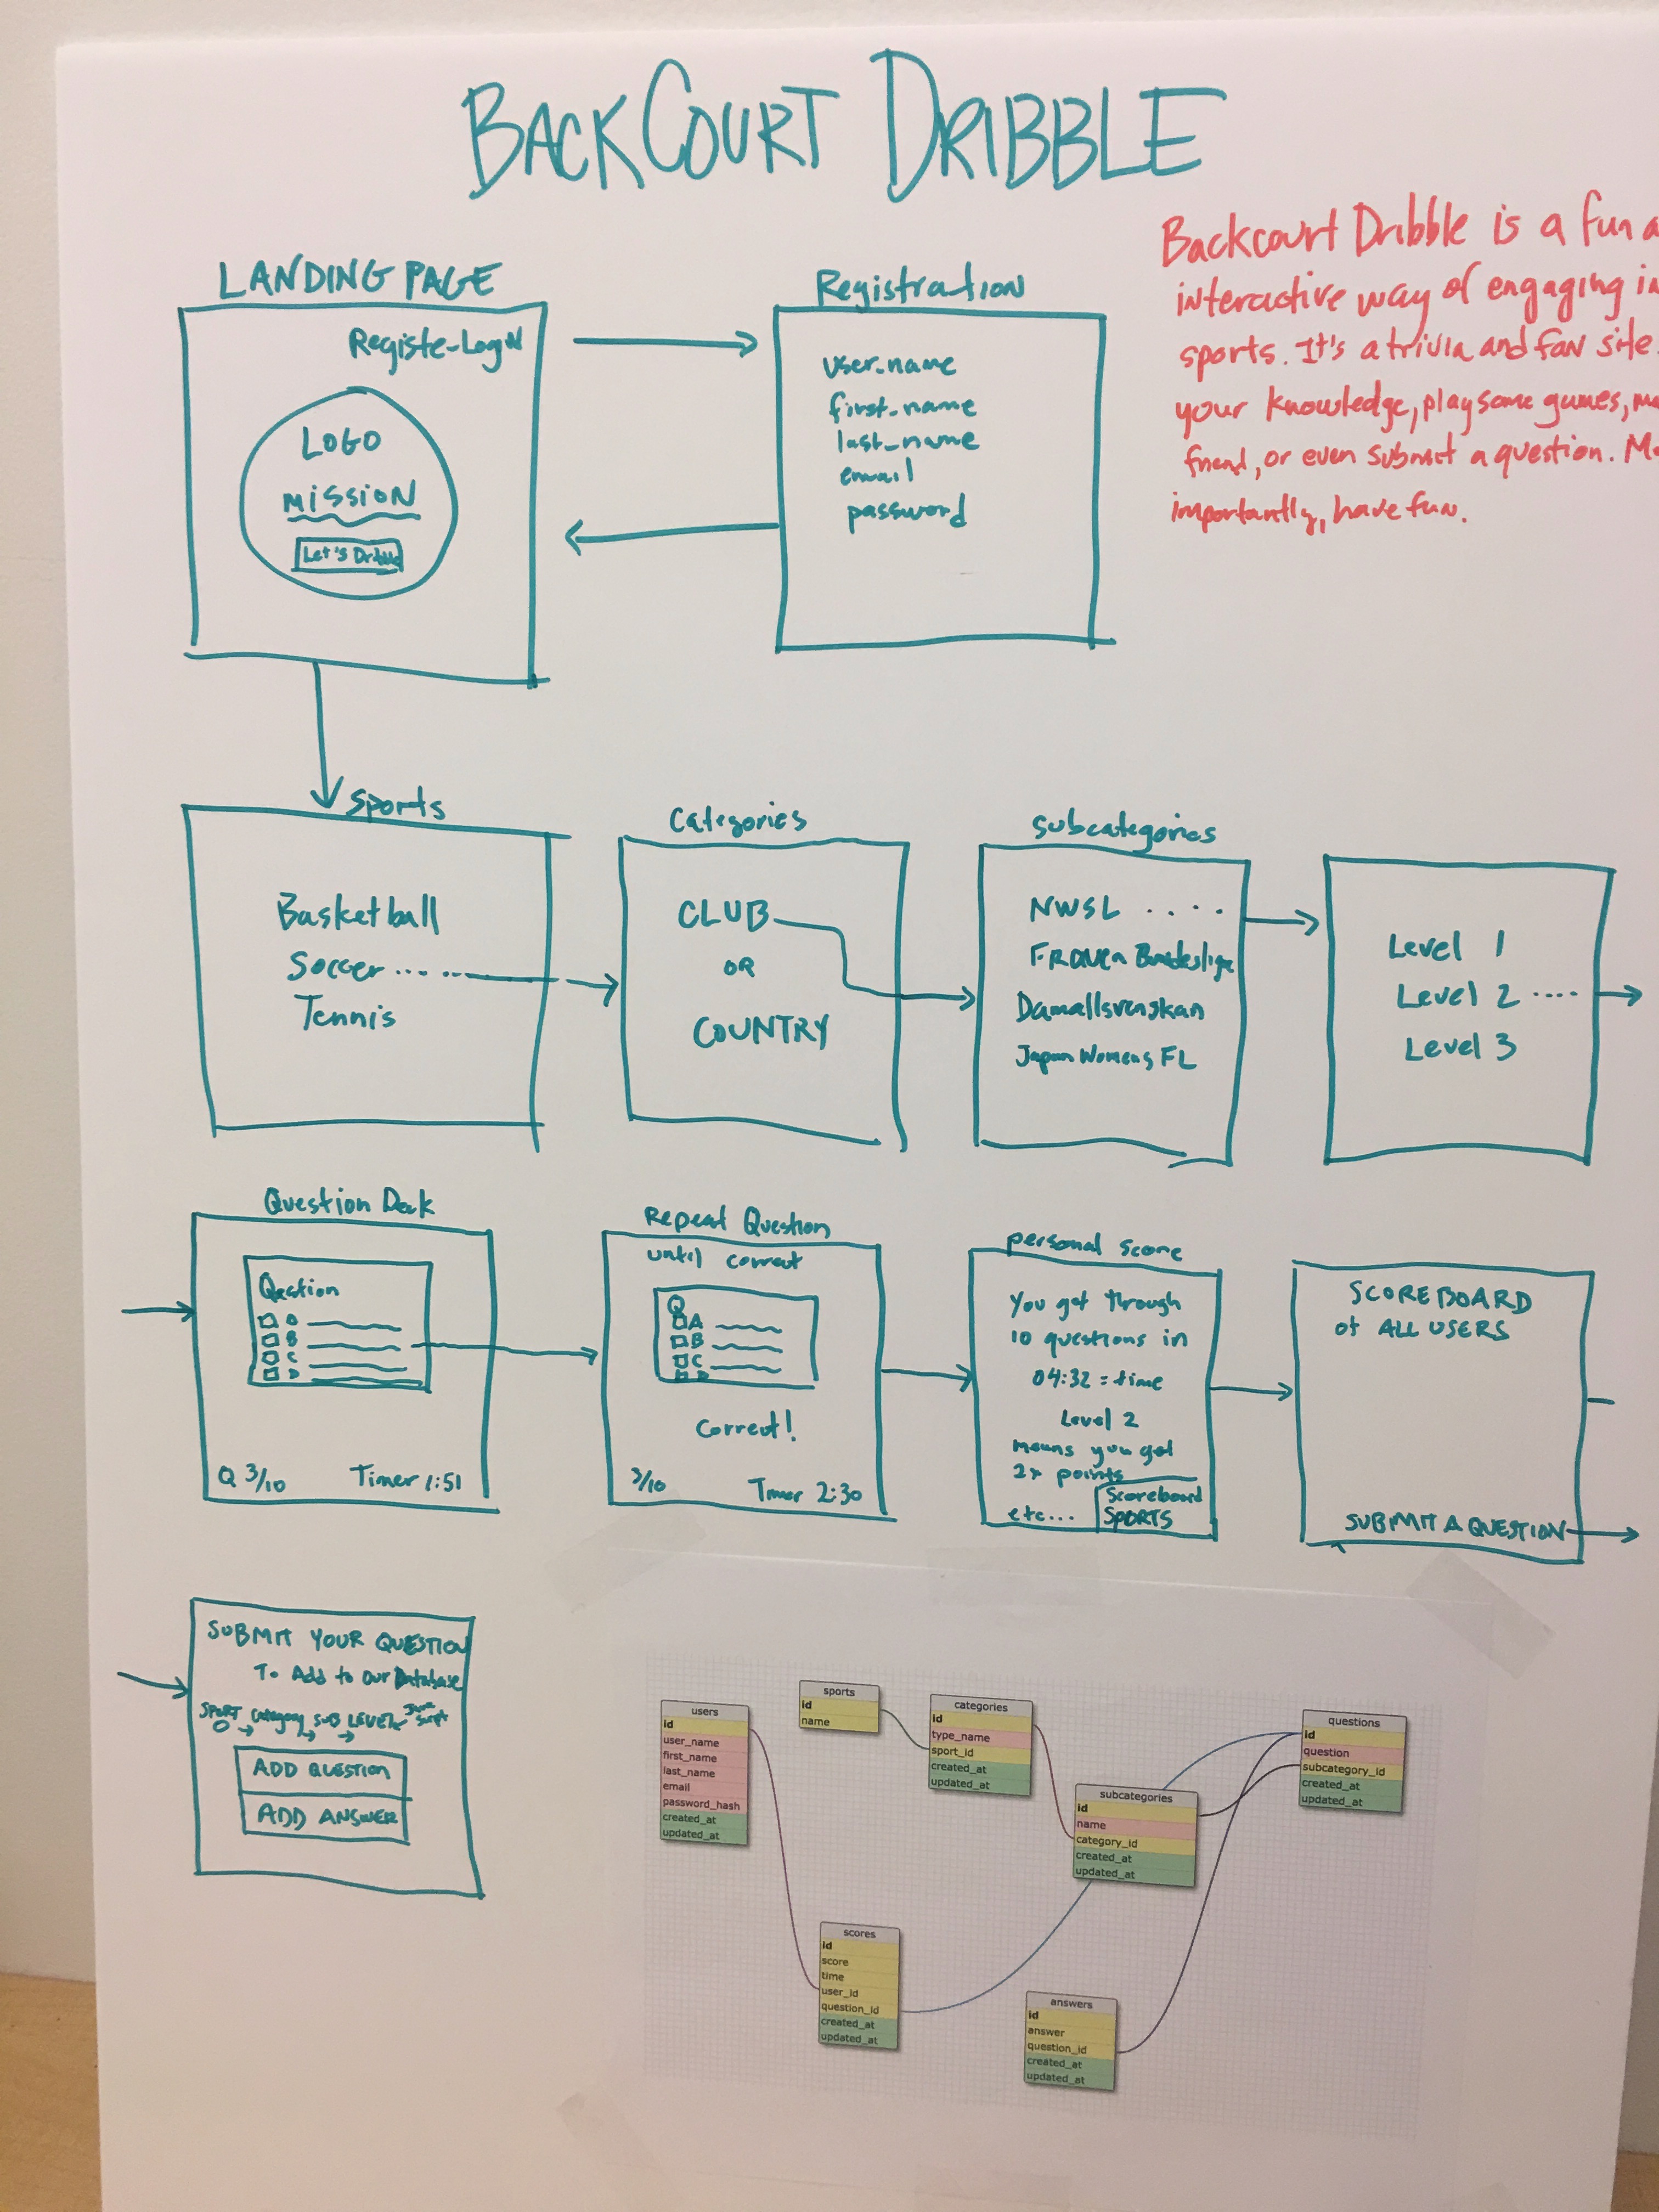 BACKCOURT DRIBBLE
Backcourt Dribble is a fun a
interactive way of engaging in
sports. It's a trivia and fan site.
your knowledge, play some games, m
friend, or even submit a question. Mo
importantly, have fun.
LANDING PAGE
Registe-Login
LOGO
MISSION
Let's Dribble
Registration
user_name
first_name
last_name
email
password
Sports
Basketball
Soccer.......
Tennis
Categories
CLUB
OR
COUNTRY
Subcategories
NWSL ....
FRAUEN Bundesliga
Damallsvenskan
Japan Womens FL
Level 1
Level 2 ....
Level 3
Question Deck
Question
A
B
C
D
Q 3/10 Timer 1:51
Repeat Question
until correct
Q
A
B
C
D
Correct!
3/10 Timer 2:30
personal score
You got through
10 questions in
04:32 = time
Level 2
means you get
2x points
etc...
Scoreboard
SPORTS
SCOREBOARD
of ALL USERS
SUBMIT A QUESTION
SUBMIT YOUR QUESTION
To Add to Our Database
SPORT Category SUB LEVEL
ADD QUESTION
ADD ANSWER
users
id
user_name
first_name
last_name
email
password_hash
created_at
updated_at
sports
id
name
categories
id
type_name
sport_id
created_at
updated_at
subcategories
id
name
category_id
created_at
updated_at
questions
id
question
subcategory_id
created_at
updated_at
scores
id
score
time
user_id
question_id
created_at
updated_at
answers
id
answer
question_id
created_at
updated_at